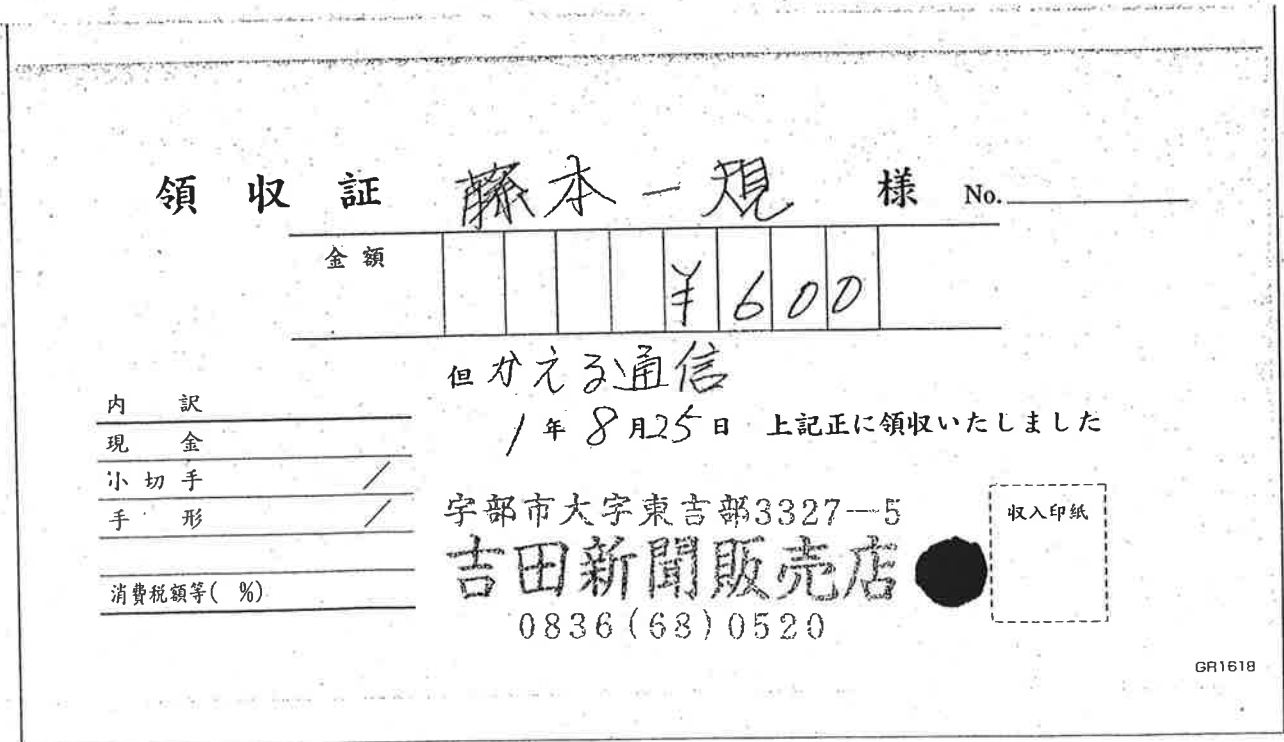 領 収 証 藤本一規 様 No.
金額 ¥600
但 かえる通信
1年8月25日 上記正に領収いたしました
内 訳
現 金
小切手 /
手 形 /
消費税額等( %)
宇部市大字東吉部3327-5
吉田新聞販売店
0836(68)0520
収入印紙
GR1618